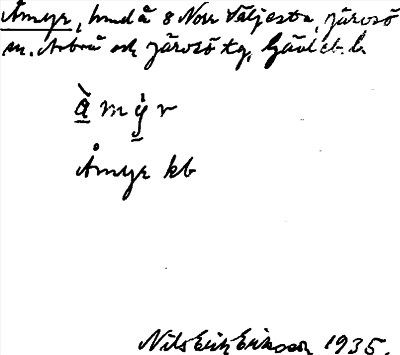 Åmyr, hund å 8 Norr Väljesta, Järvsö
sn. Arbrå och Järvsö tg, Gävleb. l.
å m y r
Åmyr kb
Nils Erik Eriksson 1935.